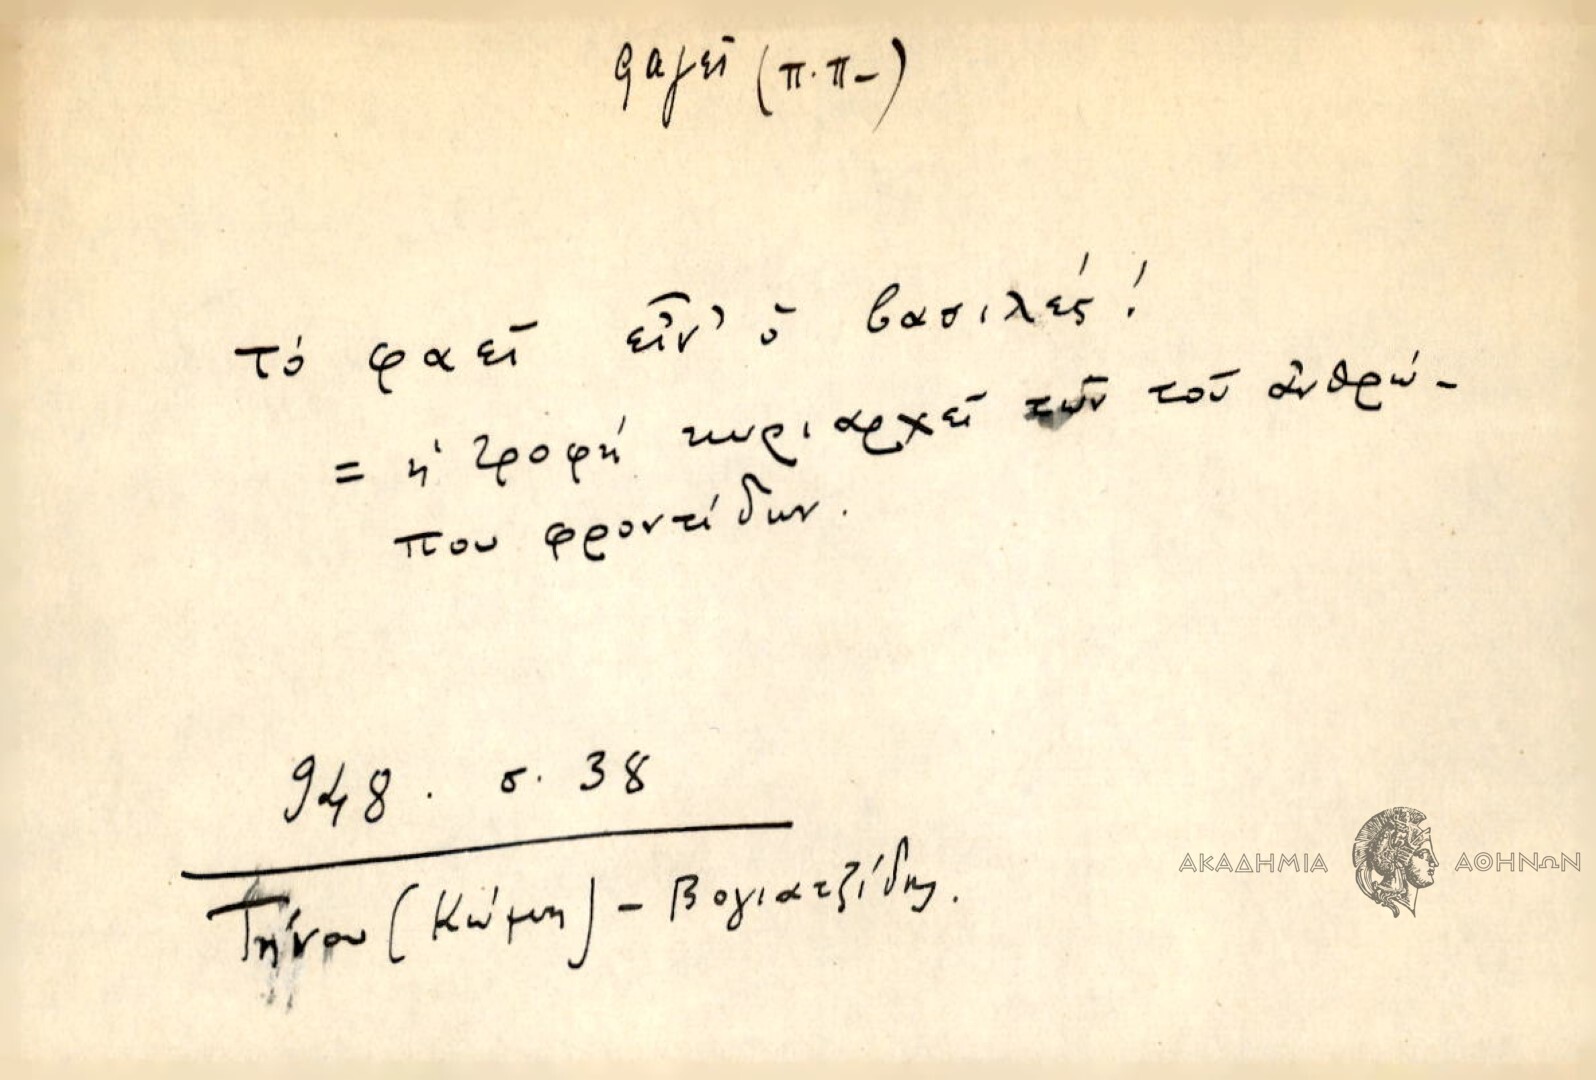 φαγεῖ (π.π-)
τό φαεῖ εἶν' ὁ βασιλές!
= ἡ τροφή κυριαρχεῖ τῶν τοῦ ἀνθρώ-
που φροντίδων.
948. σ. 38
Τήνου (Κώμη) - Βογιατζίδης.
ΑΚΑΔΗΜΙΑ ΑΘΗΝΩΝ